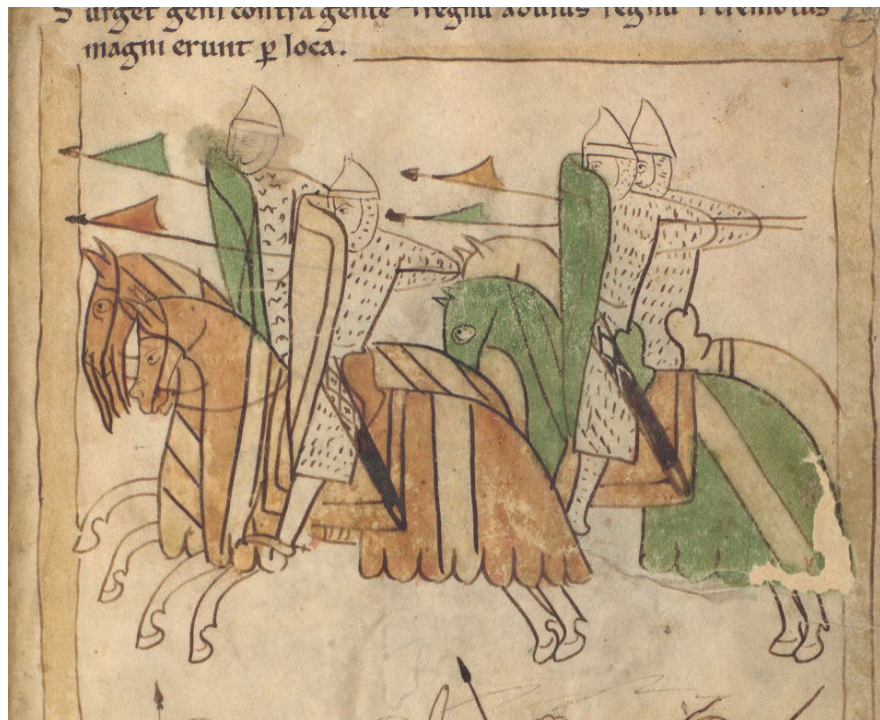 Surget gens contra gente ⁊ regnū aduīus regnū ⁊ t̄remotus
magni erunt ꝑ loca.